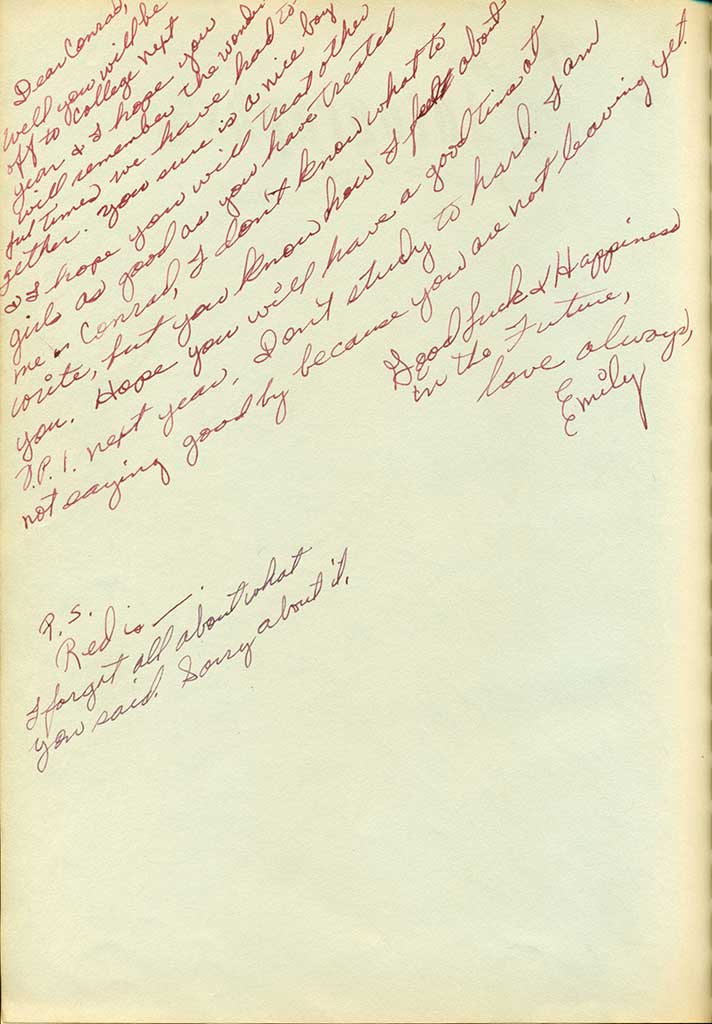 Dear Conrad,
Well you will be
off to college next
year & I hope you
will remember the wonder
ful times we have had to
gether. You sure is a nice boy
& I hope you will treat other
girls as good as you have treated
me. Conrad, I don't know what to
write, but you know how I felt about
you. Hope you will have a good time at
V.P.I. next year. Don't study to hard. I am
not saying good by because you are not leaving yet.
Good Luck & Happiness
in the Future,
love always,
Emily
P.S.
Red is —
I forgot all about what
you said. Sorry about it.